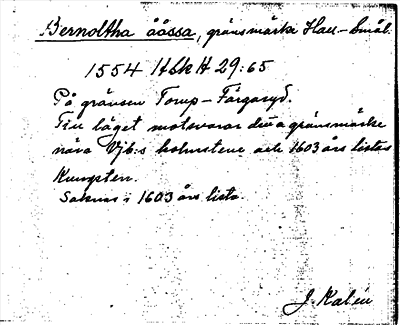 Bernoltha åässa, gränsmärke Hall.-Smål.
1554 HSkH 29:65
På gränsen Torup-Färgaryd.
Till läget motsvarar detta gränsmärke
nära Vjb:s holmstene och 1603 års listas
Kungsten.
Saknas i 1603 års lista.
J. Kalén